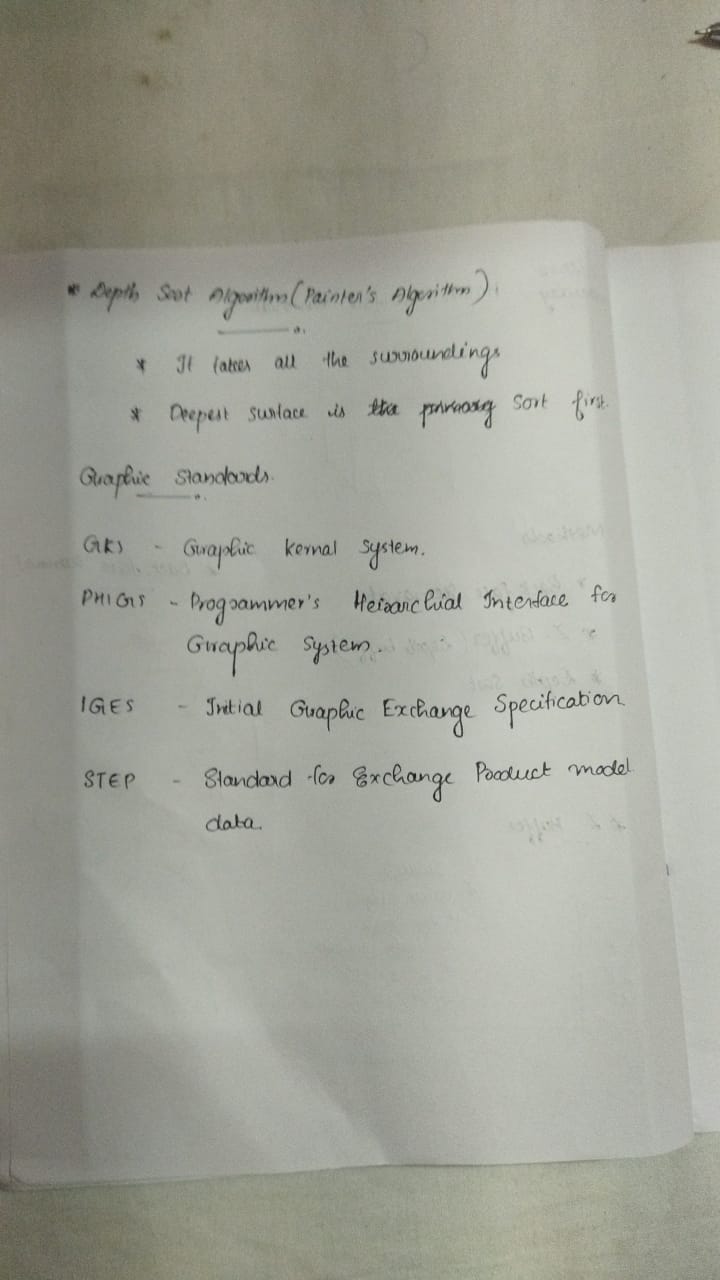 * Depth Sort Algorithm (Painter's Algorithm).
* It takes all the surroundings
* Deepest surface is the primary Sort first.
Graphic Standards.
GKS - Graphic kernal System.
PHIGIS - Programmer's Heirarchial Interface for
Graphic System.
IGES - Initial Graphic Exchange Specification
STEP - Standard for Exchange Product model
data.